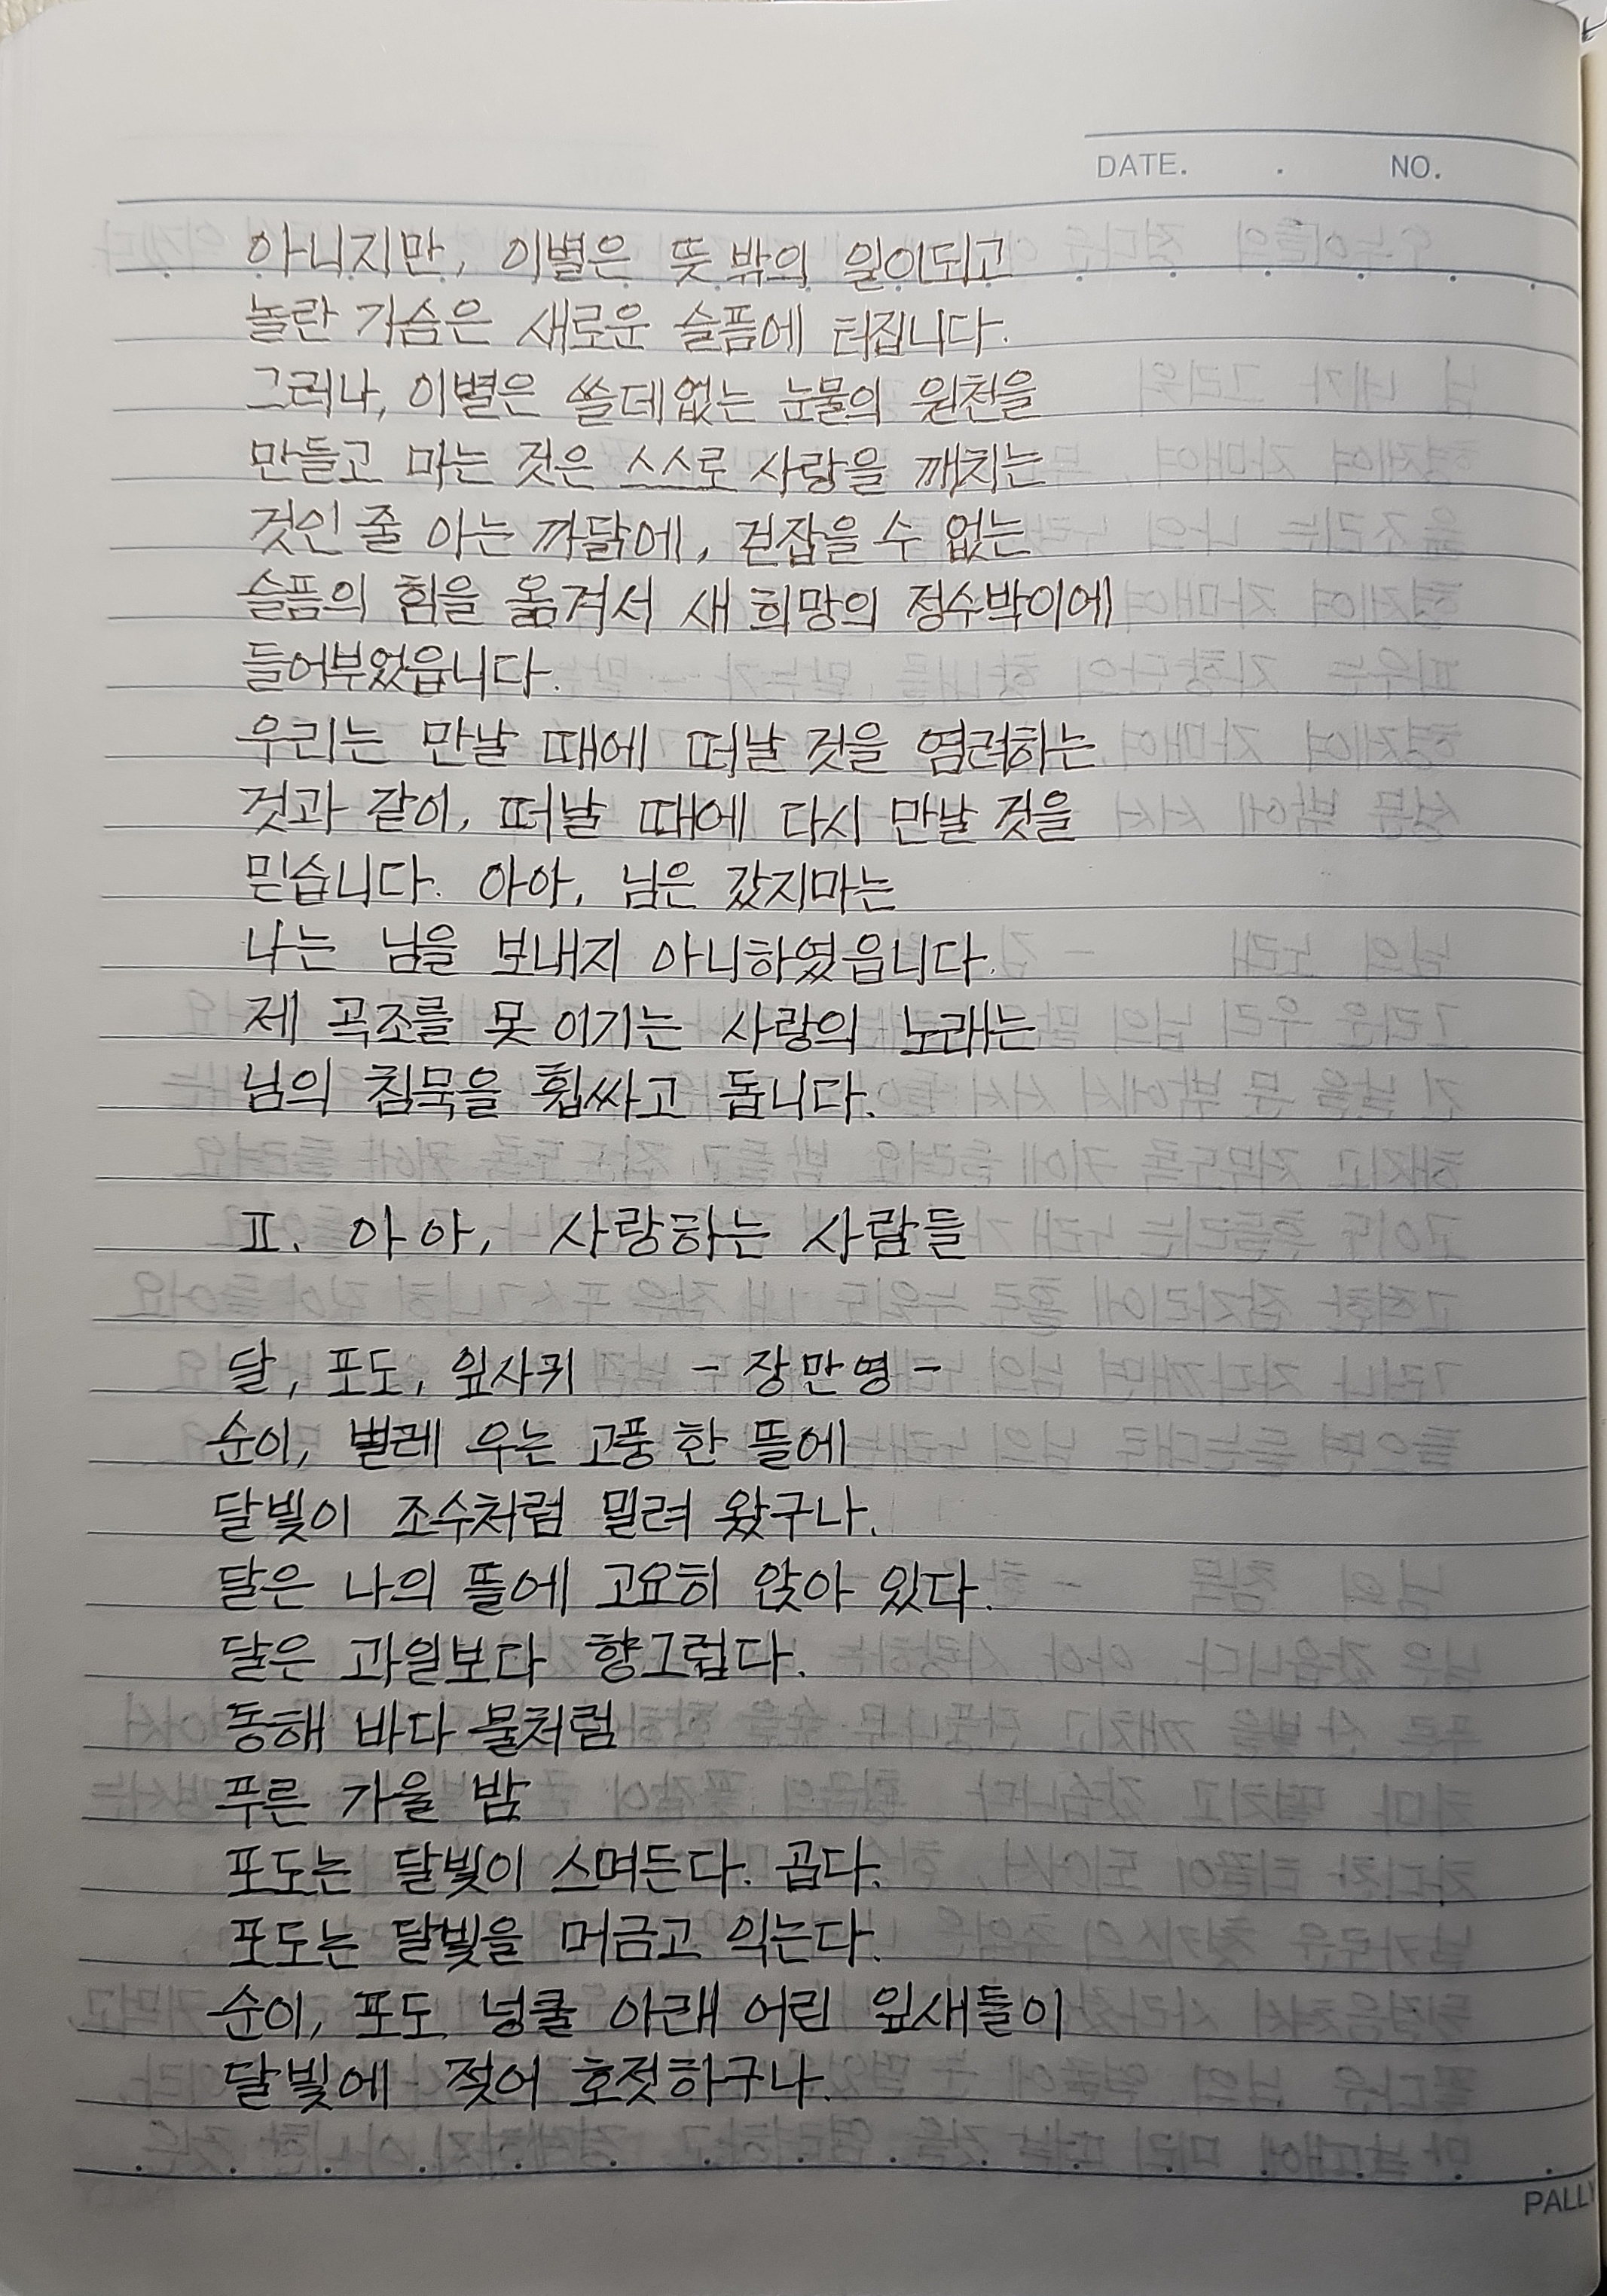 DATE. . NO.
아니지만, 이별은 뜻 밖의 일이되고
놀란 가슴은 새로운 슬픔에 터집니다.
그러나, 이별은 쓸데없는 눈물의 원천을
만들고 마는 것은 스스로 사랑을 깨치는
것인 줄 아는 까닭에, 걷잡을 수 없는
슬픔의 힘을 옮겨서 새 희망의 정수박이에
들어부었읍니다.
우리는 만날 때에 떠날 것을 염려하는
것과 같이, 떠날 때에 다시 만날 것을
믿습니다. 아아, 님은 갔지마는
나는 님을 보내지 아니하였읍니다.
제 곡조를 못 이기는 사랑의 노래는
님의 침묵을 휩싸고 돕니다.
II. 아아, 사랑하는 사람들
달, 포도, 잎사귀 - 장만영 -
순이, 벌레 우는 고풍한 뜰에
달빛이 조수처럼 밀려 왔구나.
달은 나의 뜰에 고요히 앉아 있다.
달은 과일보다 향그럽다.
동해 바다 물처럼
푸른 가을 밤
포도는 달빛이 스며든다. 곱다.
포도는 달빛을 머금고 익는다.
순이, 포도 넝쿨 아래 어린 잎새들이
달빛에 젖어 호젓하구나.
PALLY